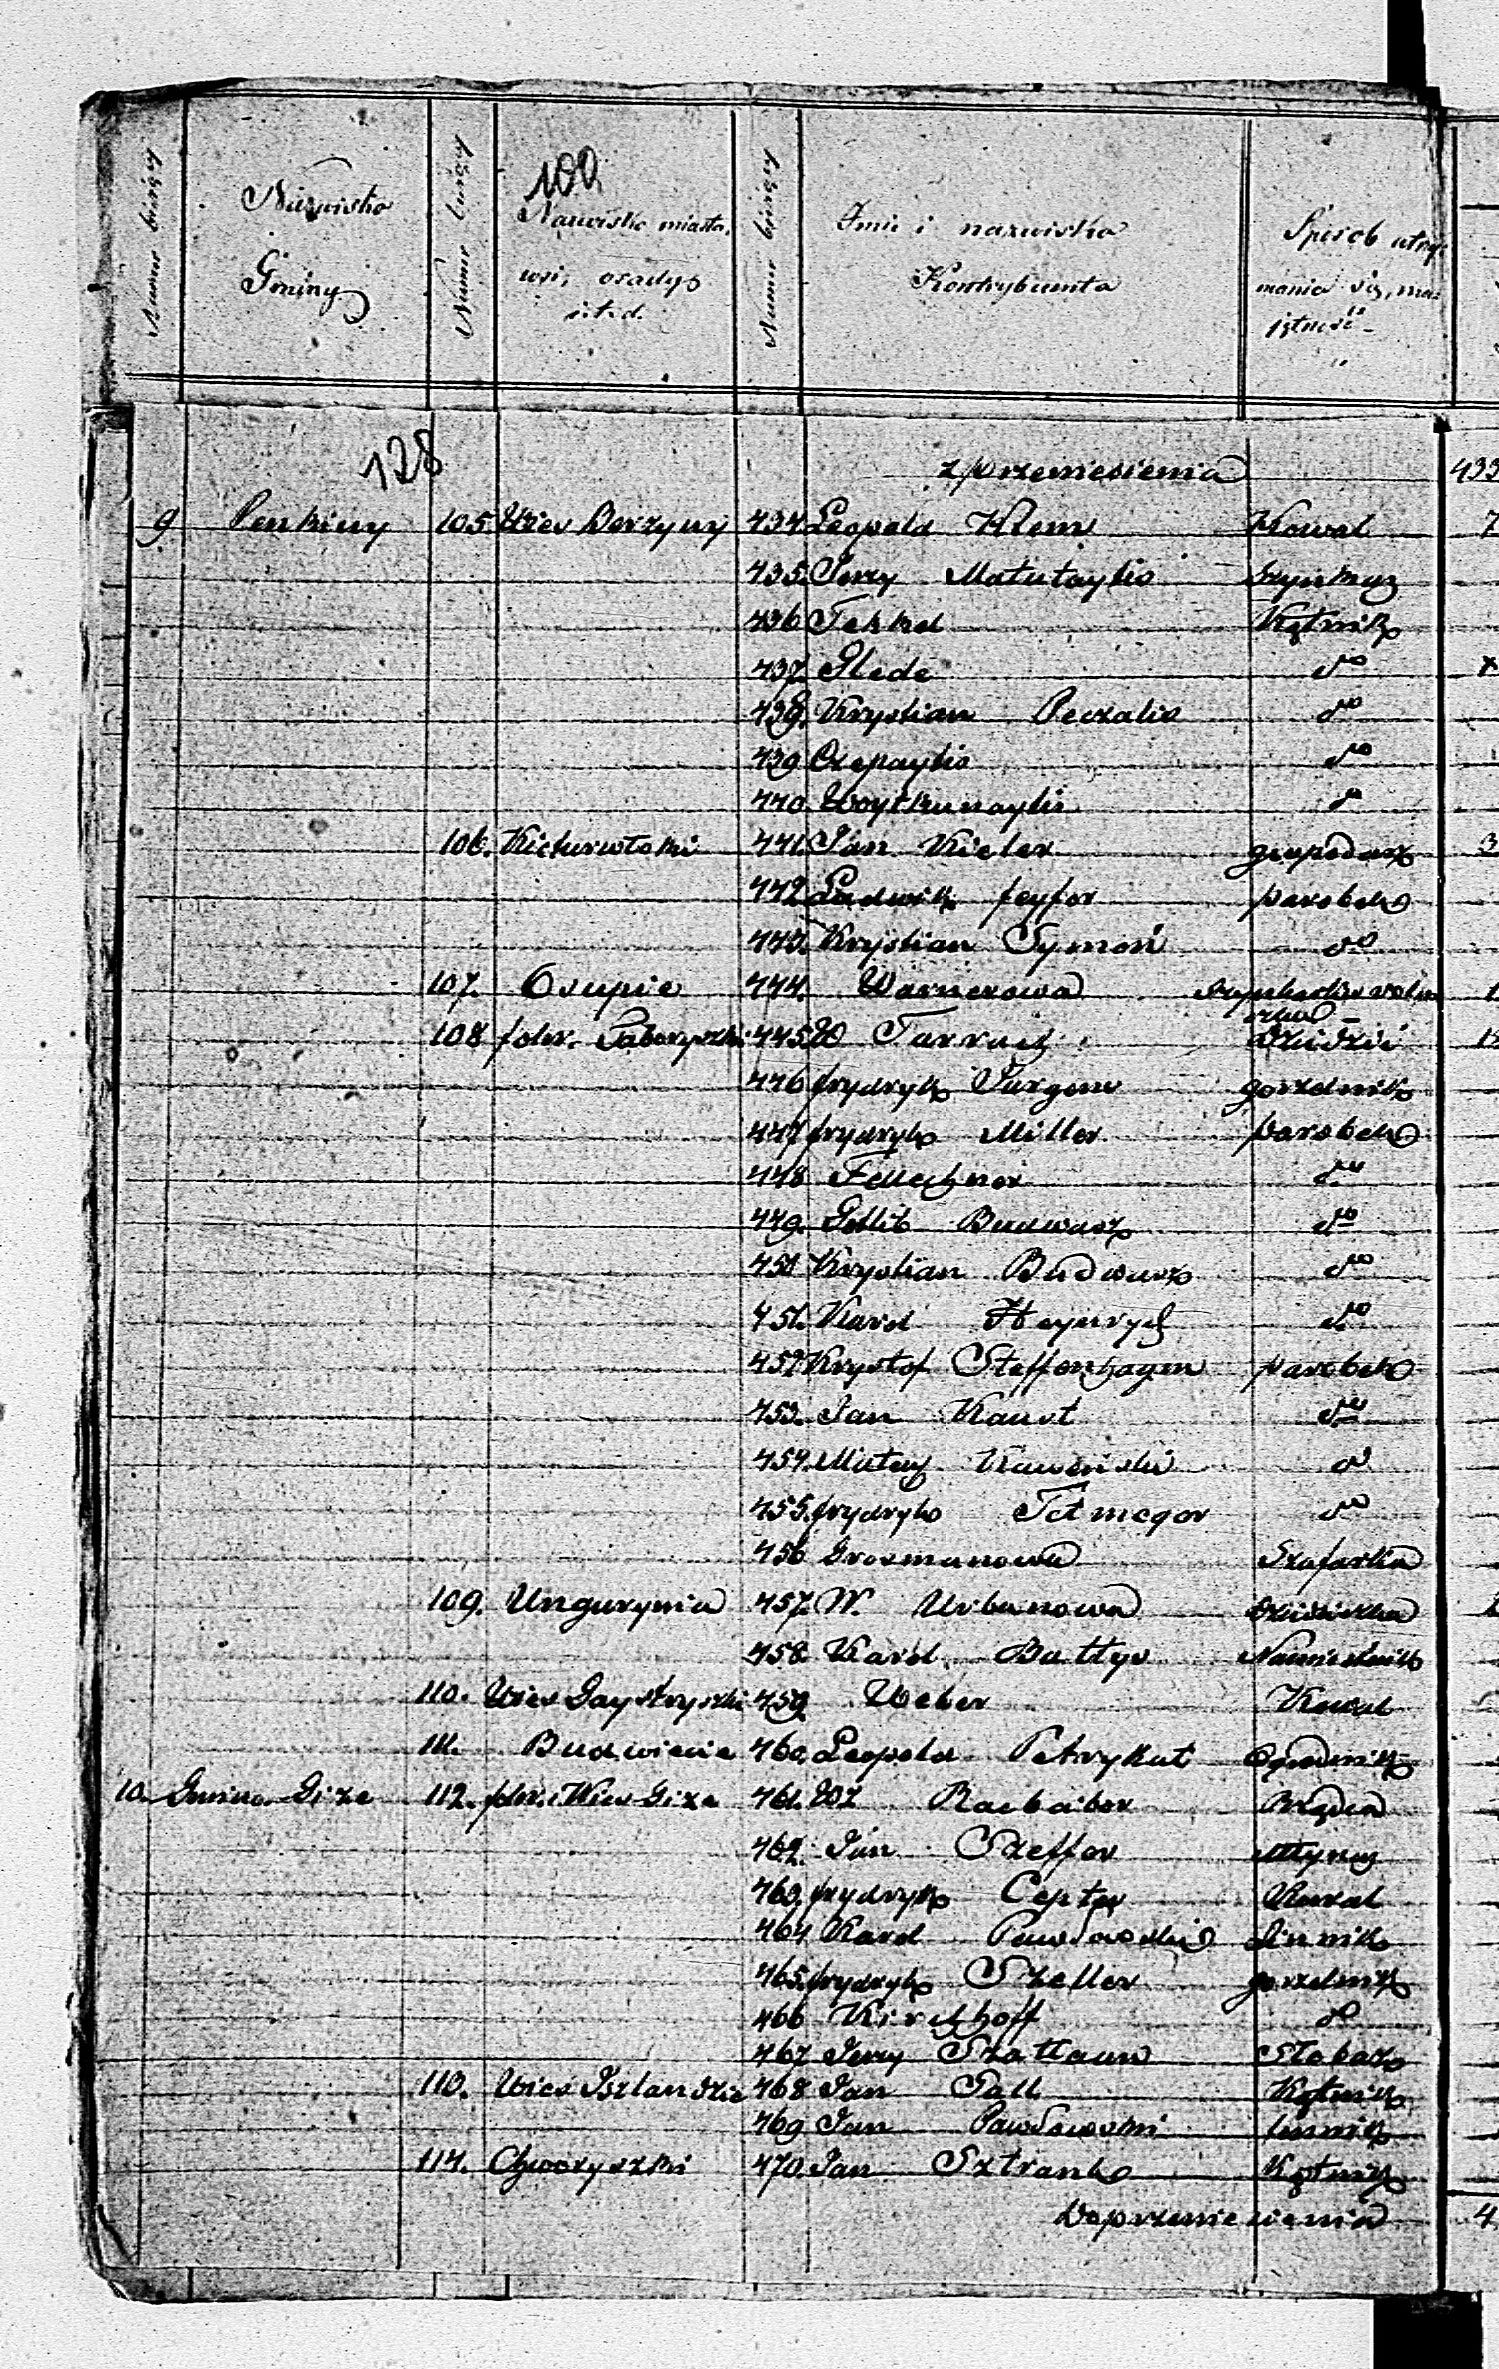 Numer bieżący
Nazwisko Gminy
Numer bieżący
100
Nazwisko miasta, wsi, osady i.t.d.
Numer bieżący
Imie i nazwisko Kontrybuenta
Sposób utrzymania się, ma jętność
128
z przeniesienia 433
9 Penkiny 105. Wieś Berzyny 434. Leopold Klem Kowal 7
435. Jerzy Matutaytis Szynkarz
436 Tekkel Kątnik
437. Glede do
438. Krystian Peczalis do
439 Czepaytis do
440. Woytkunaytis do
106. 441. Jan Kieler gospodarz 3
442 Ludwik feyfer parobek
443. Krystian Symoń do
107. Osupie 444. Warnerowa
108 folw. Taboryszki 445. W Dziedzic
446 frydryk Jurgens gorzelnik
447 frydryk Miller parobek
448 do
449. Gotlib Budwasz do
450 Krystian Budwasz do
451. Karol Heynrych do
452 Krysztof Steffenhagen parobek
453. Jan Kaust do
454. Mateuj do
455. frydryk Tetmeger do
456 Grosmanowa Szafarka
109. Ungurynia 457. W. Urbanowa Dziedziczka
458. Karol Baltys Namiestnik
110. Wieś Gaystryszki 459. Weber Kowal
111. Budwiecie 460. Leopold Petrykat Ogrodnik
10. Gmina Giże 112. folw. i Wieś Giże 461. WJ Rachabor Rządca
462. Jan Szeffer Młynarz
463. frydryk Cepter Kowal
464 Karol Pawłowski
465. frydryk Szeller gorzelnik
466 Kirchhoff do
467 Jerzy Szattaun
113. Wieś Iszlandzie 468 Jan Sall Kątnik
469 Jan Pawłowski
114. Chworyszki 470. Jan Sztrank Kątnik
Do przeniesienia 4